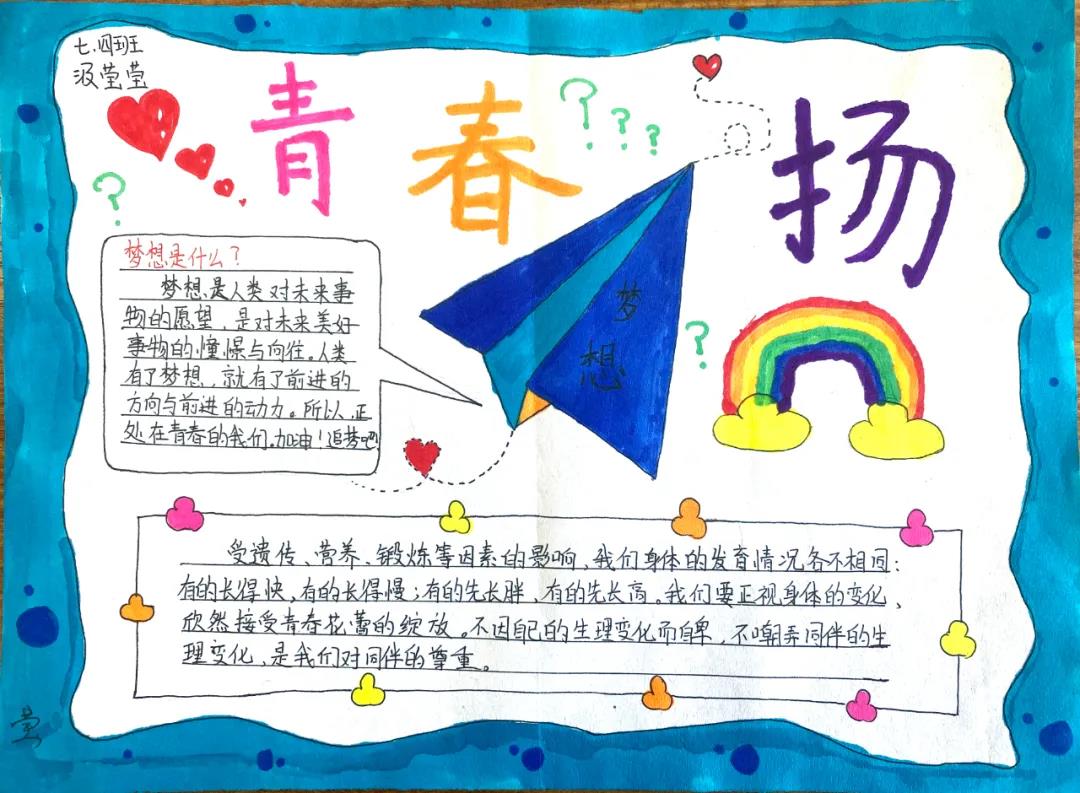 七.四班
汲莹莹
青春
扬
梦想是什么？
梦想是人类对未来事
物的愿望，是对未来美好
事物的憧憬与向往。人类
有了梦想，就有了前进的
方向与前进的动力。所以，正
处在青春的我们，加油！追梦吧
梦
想
受遗传、营养、锻炼等因素的影响，我们身体的发育情况各不相同：
有的长得快，有的长得慢；有的先长胖，有的先长高。我们要正视身体的变化，
欣然接受青春花蕾的绽放。不因自己的生理变化而自卑，不嘲弄同伴的生
理变化，是我们对同伴的尊重。